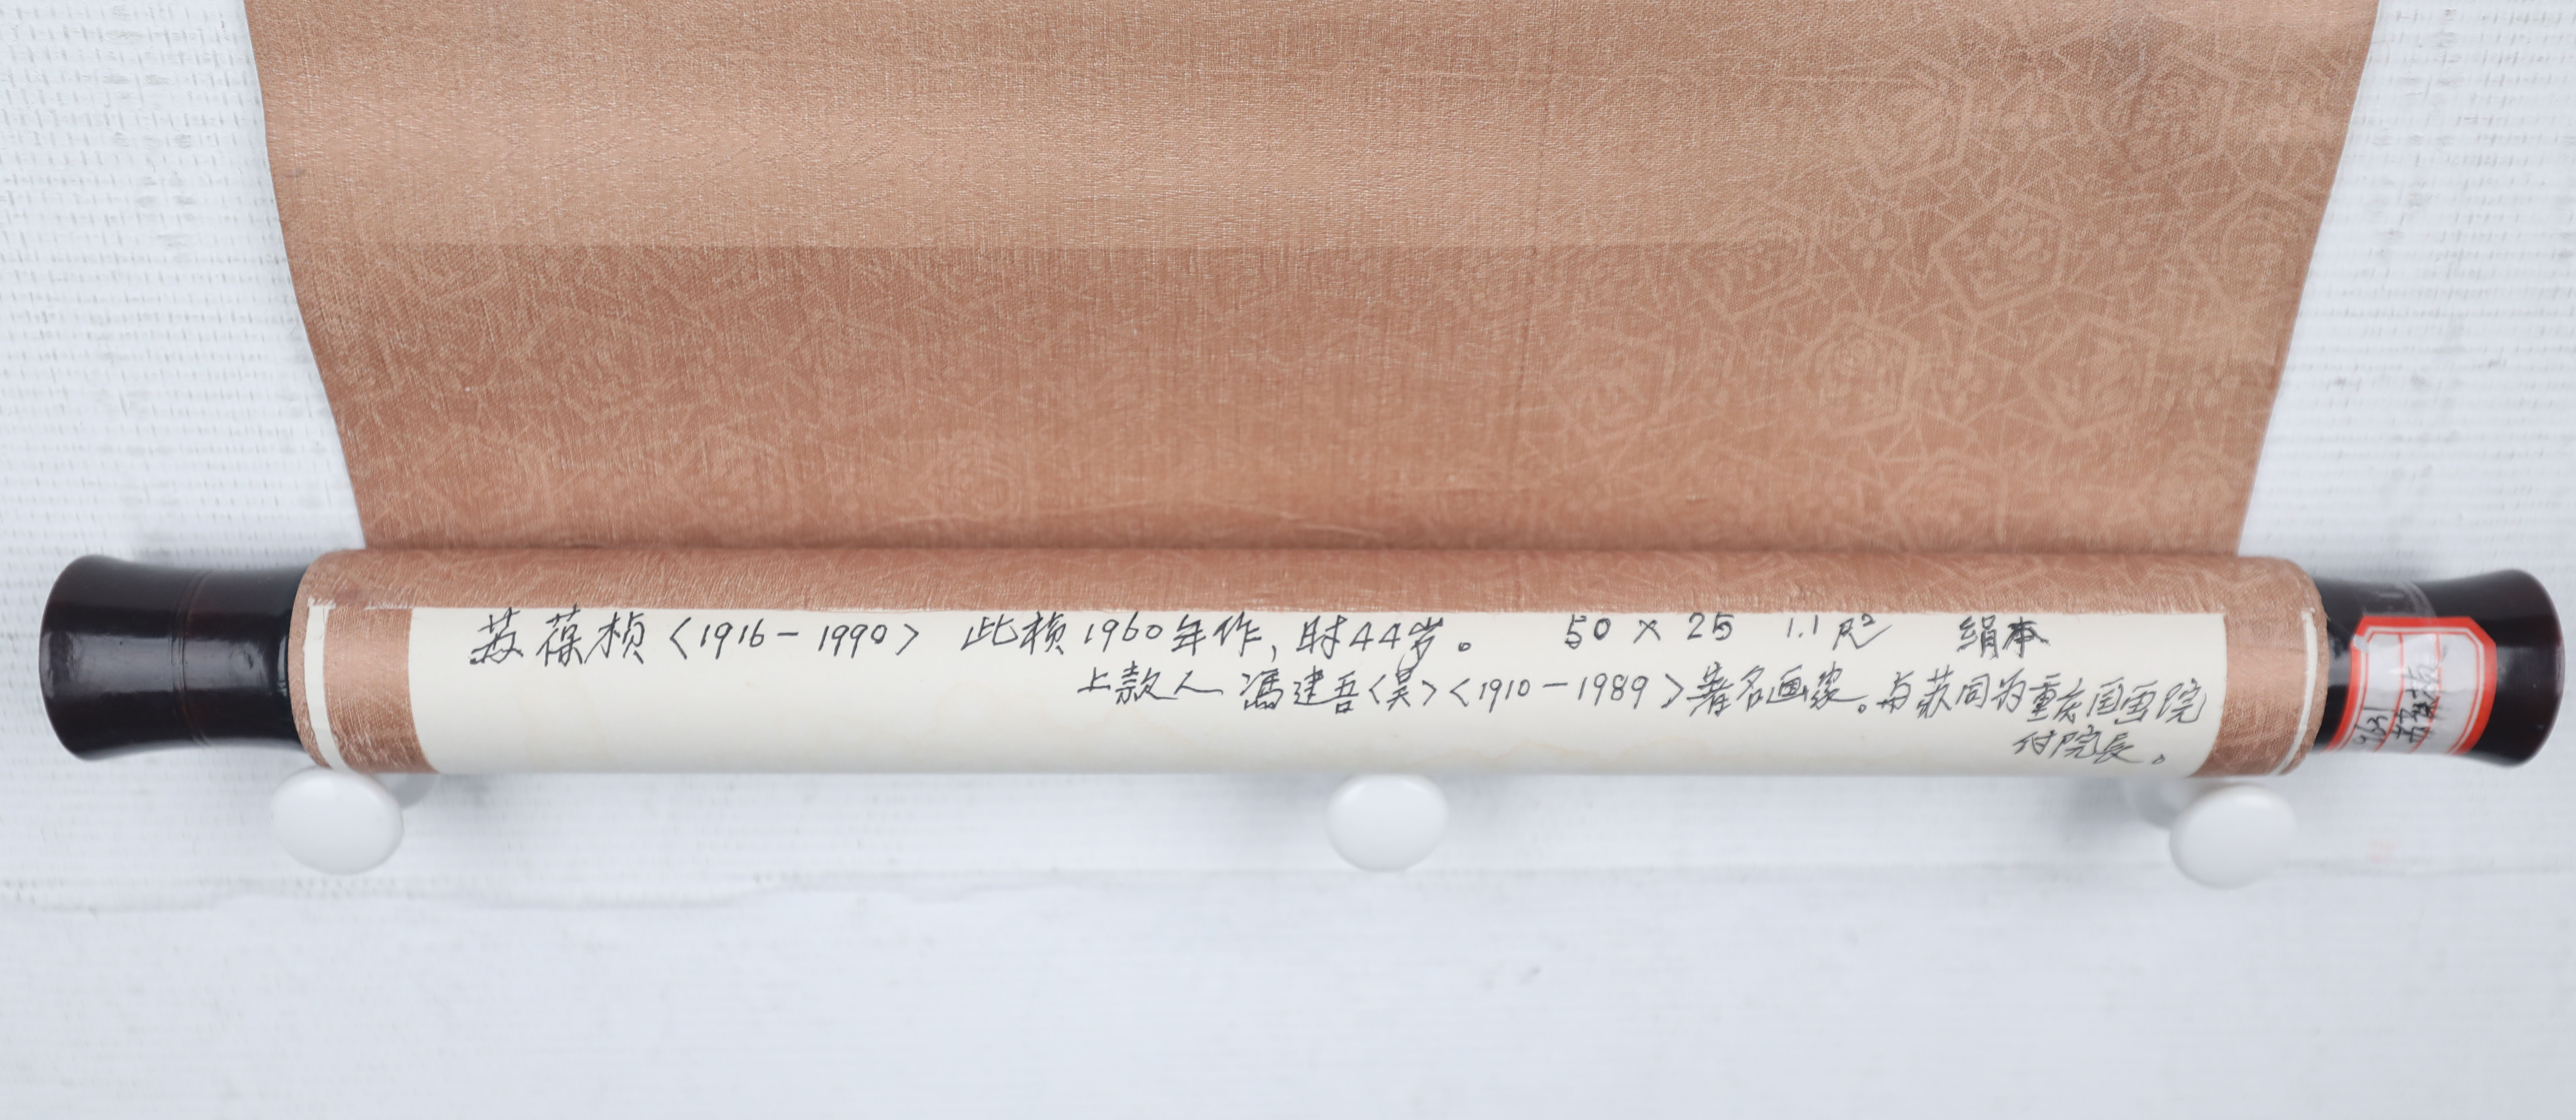 苏葆桢〈1916-1990〉 此桢1960年作,时44岁。 50×25 1.1尺² 绢本
上款人 冯建吾〈昊〉〈1910-1989〉著名画家。与苏同为重庆国画院
付院长。
苏葆桢